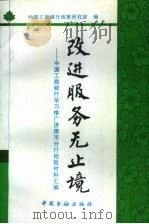 中国工商银行政策研究室 编
改进服务无止境
——中国工商银行学习推广济南市分行经验材料汇编
中国金融出版社